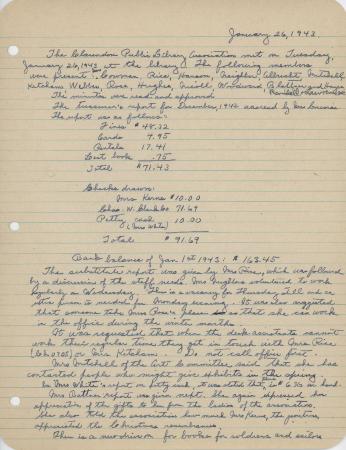 January 26, 1943
The Clarendon Public Library Association met on Tuesday,
January 26, 1943 at the library. The following members
were present: Mesdames Rice, Hanson, Albrecht, Mitchell
Ketcham, Webber, Rose, Hughes, Nicoll, Woodward,
The minutes were read and approved.
The treasurer's report for December, 1942 was read by Mrs.
The report is as follows:
Fines $48.32
Cards 4.95
Rentals 17.41
Lost book .75
Total $71.43
Checks drawn:
Mrs Kerns $10.00
Chas. W. Clark Co 71.69
Petty cash 10.00
(Mrs White)
Total $91.69
Bank balance of Jan 1st 1943: $163.45
The substitute report was given by Mrs Rice, which was followed
by a discussion of the staff needs. Mrs Hughes volunteered to work
regularly on Wednesday. There is a vacancy for Thursday, and a
is needed for Monday evening. It was also suggested
that someone take Mrs Rose's place so that she can work
in the office during the winter months.
It was requested that when the desk assistants cannot
work their regular time they get in touch with Mrs Rice
(Ch 0705) or Mrs Ketcham. Do not call office first.
Mrs Mitchell of the Art Committee, said that she has
contacted people who might give exhibits in the spring.
In Mrs White's report on petty cash, it was stated that, is on hand.
Mrs report was given next. She again expressed her
appreciation of the gifts to her from the ladies of the association.
She also told the association how much Mrs Kerns, the janitress,
appreciated the Christmas remembrance.
There is a new division for books for soldiers and sailors